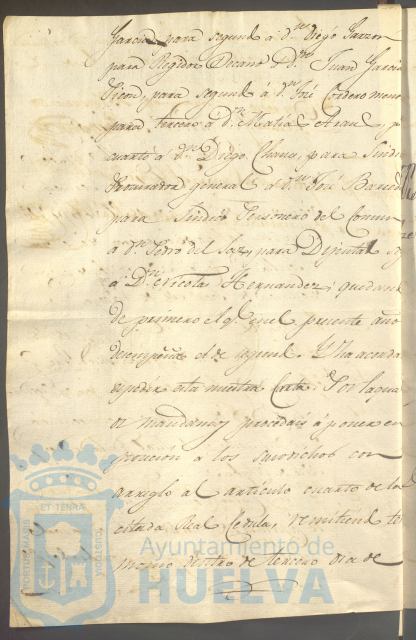 Garcia, para segundo á d.n Diego Garzon
para Regidor Decano á D.n Juan Garcia
para segundo á d.n José Cordero
para tercero á D.n Matias
cuarto á d.n Diego para Sindico
Procurador general á d.n José
para Sindico Personero del Comun
á d.n Pedro del Saz, para Diputado
á D.n Nicola Hernandez; quedando
de primero el q.e en el presente año
el de segundo. Y ha acordado
expedir esta nuestra Carta. Por la qual
os mandamos procedais á poner en
posecion á los susodichos con
arreglo al articulo cuarto de la
citada Real Cedula, remitiendo
dentro de tercero dia de
PORTUS MARIS
ET TERRÆ
CUSTODIA
Ayuntamiento de
HUELVA